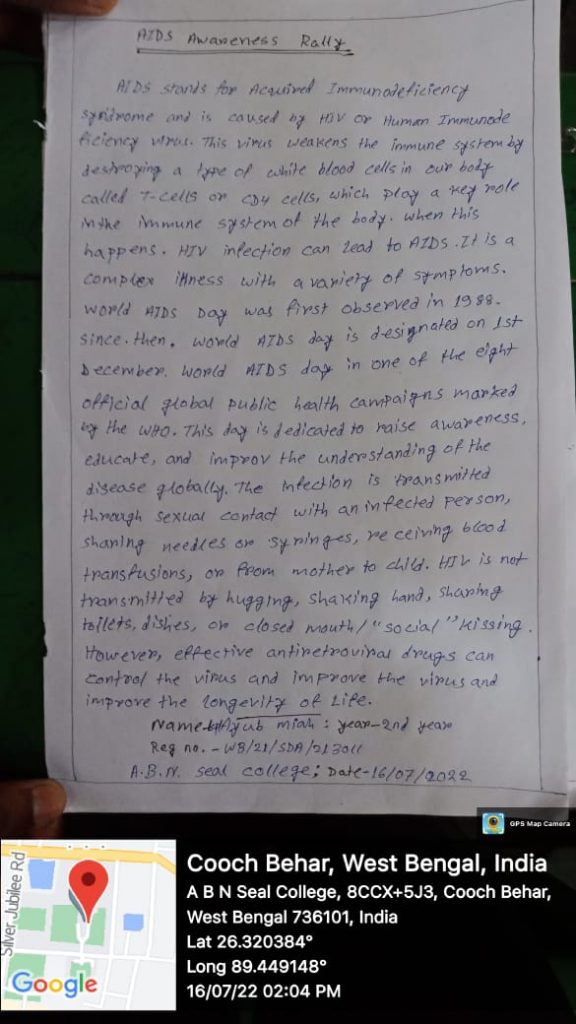 AIDS Awareness Rally
AIDS stands for Acquired Immunodeficiency
syndrome and is caused by HIV or Human Immunode
ficiency virus. This virus weakens the immune system by
destroying a type of white blood cells in our body
called T-cells or CD4 cells, which play a key role
in the immune system of the body. when this
happens. HIV infection can lead to AIDS. It is a
complex illness with a variety of symptoms.
World AIDS Day was first observed in 1988.
since. then. world AIDS day is designated on 1st
December. World AIDS day in one of the eight
official global public health campaigns marked
by the WHO. This day is dedicated to raise awareness,
educate, and improv the understanding of the
disease globally. The infection is transmitted
through sexual contact with an infected person,
sharing needles or syringes, receiving blood
transfusions, or from mother to child. HIV is not
transmitted by hugging, shaking hand, sharing
toilets, dishes, or closed mouth/"social" kissing.
However, effective antiretroviral drugs can
control the virus and improve the virus and
improve the longevity of life.
Name:- Ayub miah : year-2nd year
Reg no. - WB/21/SDA/213011
A.B.N. seal college; Date-16/07/2022
GPS Map Camera
Silver Jubilee Rd
Google
Cooch Behar, West Bengal, India
A B N Seal College, 8CCX+5J3, Cooch Behar,
West Bengal 736101, India
Lat 26.320384°
Long 89.449148°
16/07/22 02:04 PM